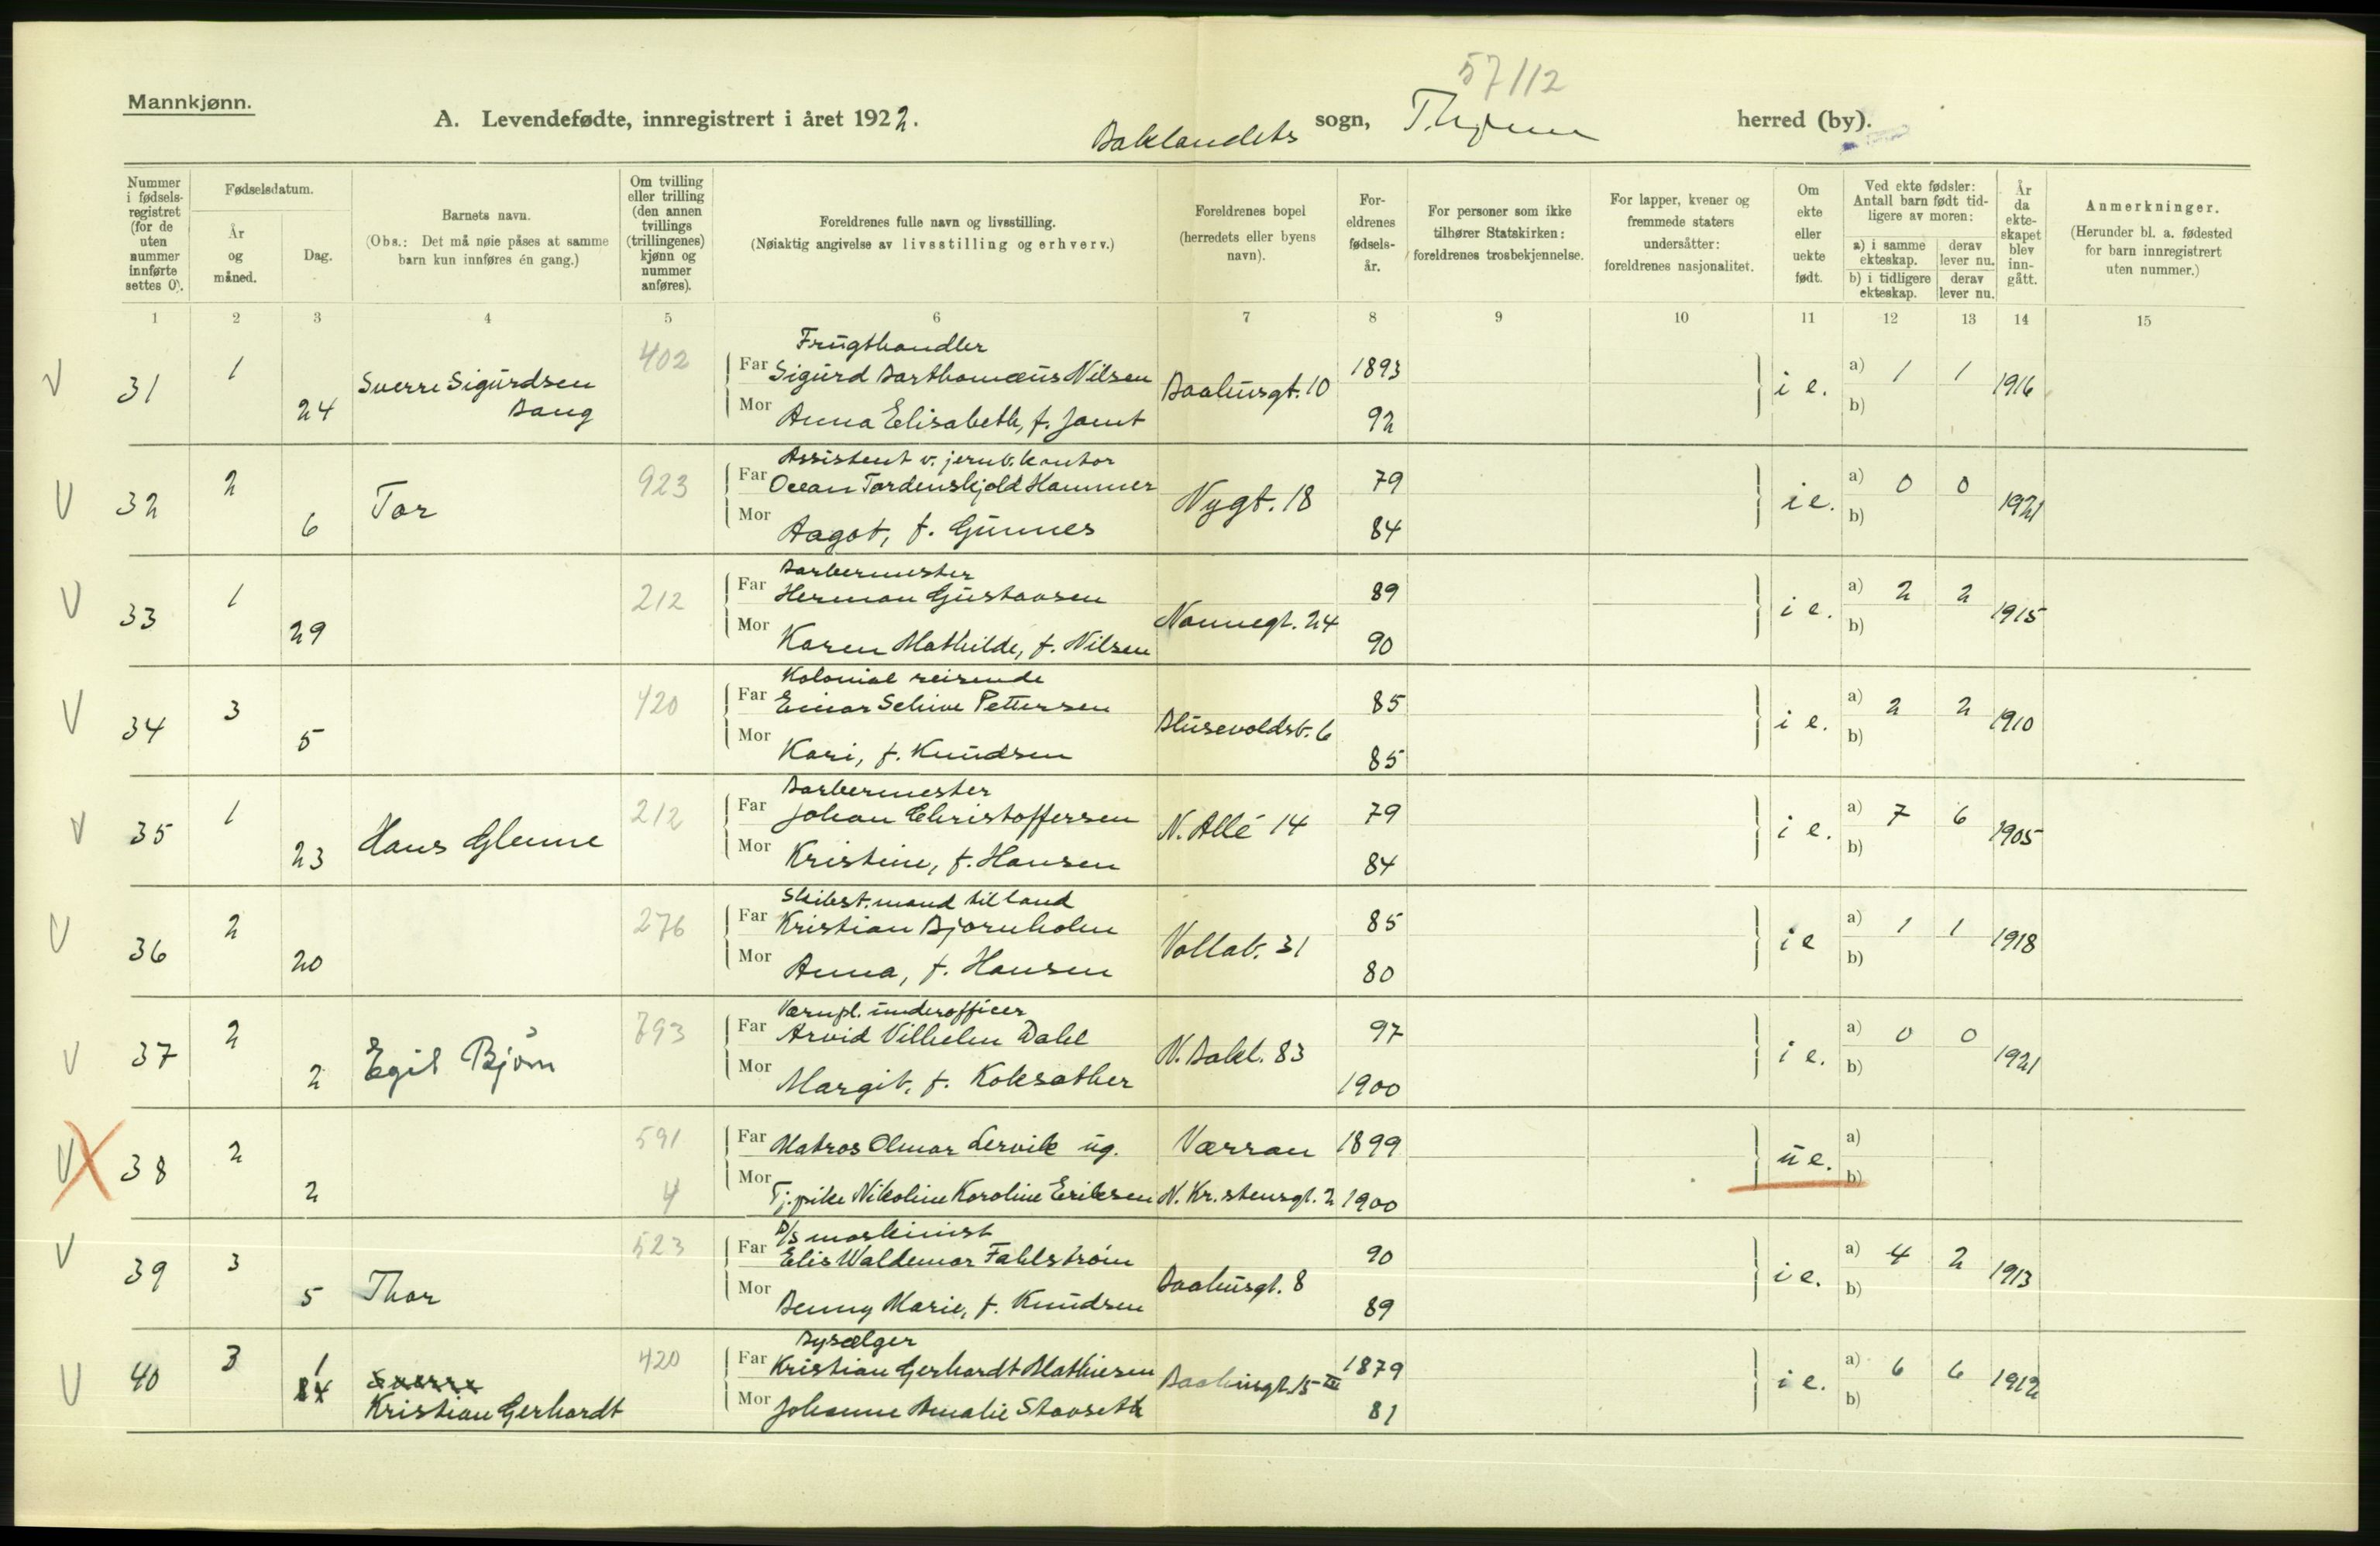 57/12
Mannkjønn.
A. Levendefødte, innregistrert i året 1922. Baklandets sogn, Thjem herred (by).
Nummer i fødselsregistret (for de uten nummer innførte settes 0).
Fødselsdatum.
År og måned.
Dag.
Barnets navn.
(Obs.: Det må nøie påses at samme barn kun innføres én gang.)
Om tvilling eller trilling (den annen tvillings (trillingenes) kjønn og nummer anføres).
Foreldrenes fulle navn og livsstilling.
(Nøiaktig angivelse av livsstilling og erhverv.)
Foreldrenes bopel (herredets eller byens navn).
Foreldrenes fødselsår.
For personer som ikke tilhører Statskirken: foreldrenes trosbekjennelse.
For lapper, kvener og fremmede staters undersåtter: foreldrenes nasjonalitet.
Om ekte eller uekte født.
Ved ekte fødsler: Antall barn født tidligere av moren:
a) i samme ekteskap. derav lever nu.
b) i tidligere ekteskap. derav lever nu.
År da ekteskapet blev inngått.
Anmerkninger.
(Herunder bl. a. fødested for barn innregistrert uten nummer.)
1 2 3 4 5 6 7 8 9 10 11 12 13 14 15
V 31 1 24 Sverre Sigurdsen Baug 402
Frugthandler
Far Sigurd Barthomæus Nilsen Baahusgt. 10 1893 i e. a) 1 1 1916
Mor Anna Elisabeth, f. Jamt 92 b)
V 32 2 6 Tor 923
Assistent v. jernb. kontor
Far Ocean Tordenskjold Hammer Nygt. 18 79 i e. a) 0 0 1921
Mor Aagot, f. Gunnes 84 b)
V 33 1 29 212
Barbermester
Far Herman Gustavsen Nonnegt. 24 89 i e. a) 2 2 1915
Mor Karen Mathilde, f. Nilsen 90 b)
V 34 3 5 420
Kolonial reisende
Far Einar Schive Pettersen Busevoldsv. 6 85 i e. a) 2 2 1910
Mor Kari, f. Knudsen 85 b)
V 35 1 23 Hans Glenne 212
Barbermester
Far Johan Christoffersen N. Allé 14 79 i e. a) 7 6 1905
Mor Kristine, f. Hansen 84 b)
V 36 2 20 276
Skibst.mand til land
Far Kristian Bjørnholm Vollab. 31 85 i e a) 1 1 1918
Mor Anna, f. Hansen 80 b)
V 37 2 2 Egil Bjørn 793
Værnpl. underofficer
Far Arvid Vilhelm Dahl N. Bakl. 83 97 i e. a) 0 0 1921
Mor Margit, f. Koksæther 1900 b)
V X 38 2 2 591 4
Far Matros Olmar Lervik ug. Værran 1899 u e. a)
Mor Tj.pike Nikoline Karoline Eriksen N. Kr.stensgt. 2 1900 b)
V 39 3 5 Thor 523
D/S maskinist
Far Elis Waldemar Fahlstrøm Baahusgt. 8 90 i e. a) 4 2 1913
Mor Benny Marie, f. Knudsen 89 b)
V 40 3 1 Sverre Kristian Gerhardt 420
Bysælger
Far Kristian Gerhardt Mathiesen Baahusgt. 15 III 1879 i e. a) 6 6 1912
Mor Johanne Amalie Stavseth 81 b)